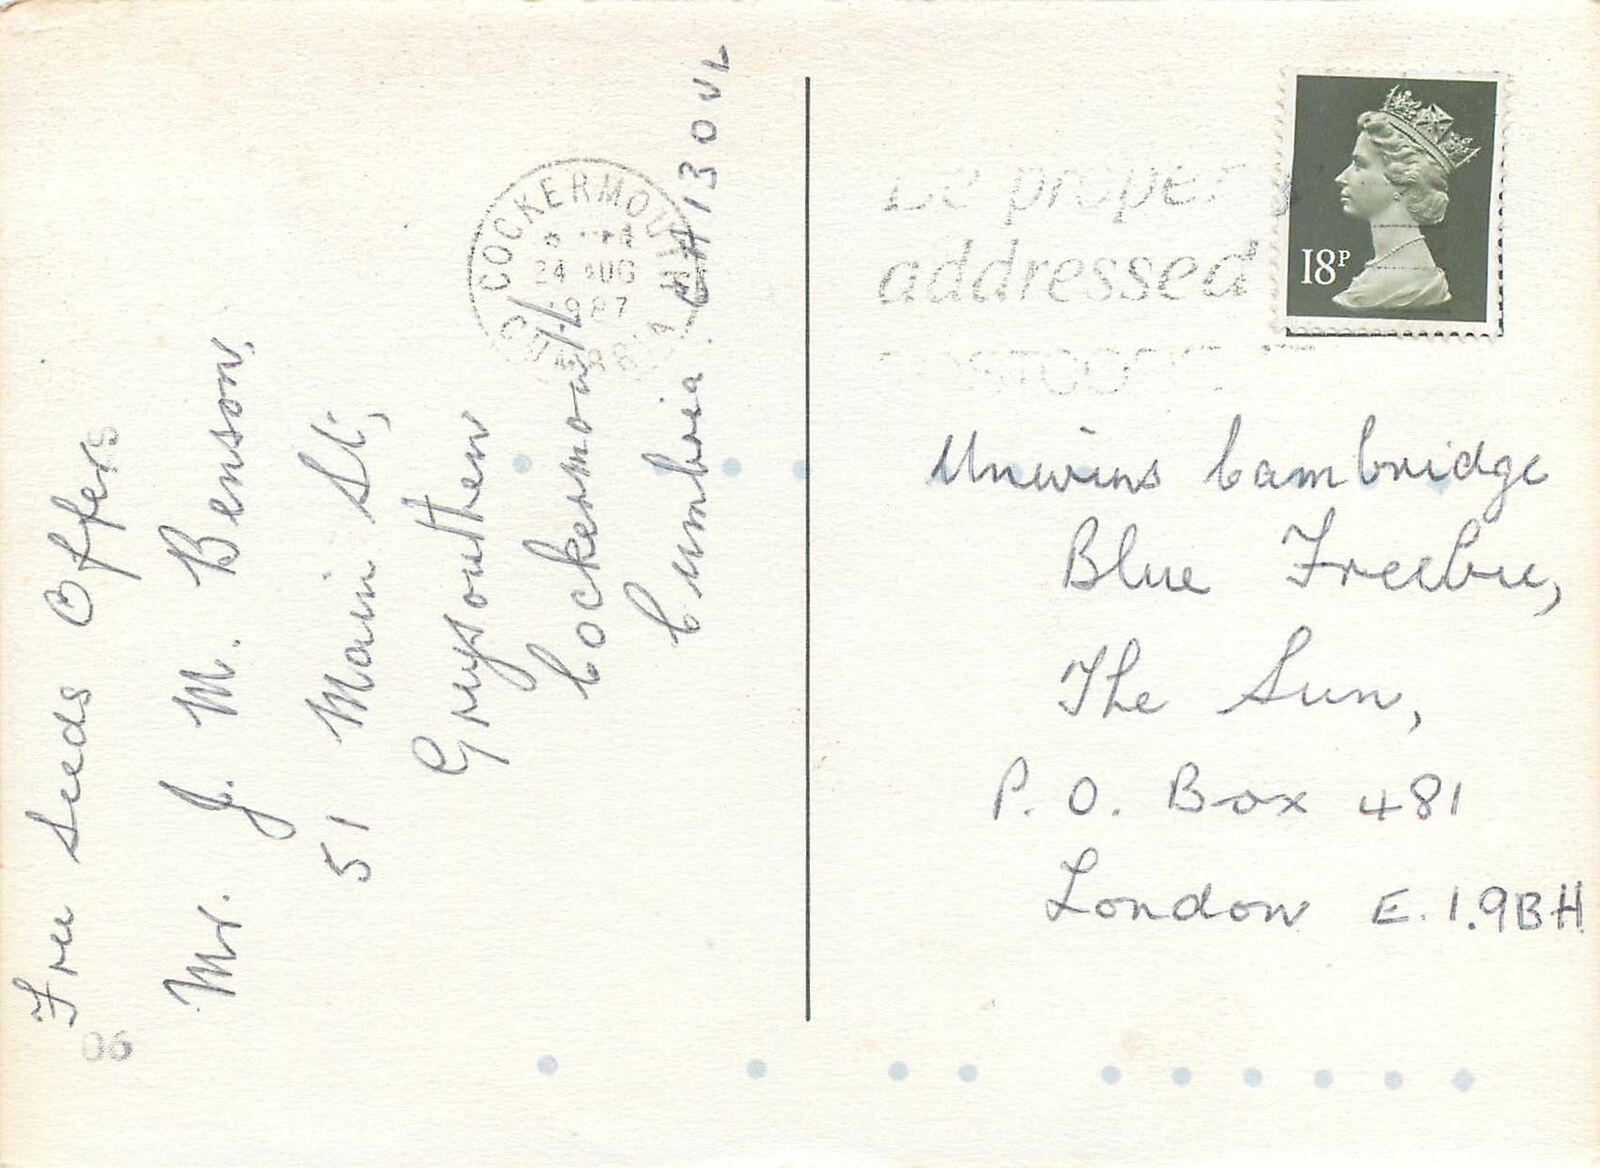 Free Seeds Offers
Mr. J. M. Benson,
51 Main St,
Greysouthen
Cockermouth
Cumbria. CA13 0UL
06
COCKERMOUTH
24 AUG
1987
CUMBRIA
Be properly
addressed
POSTCODE IT
18P
Unwins Cambridge
Blue Freebie,
The Sun,
P. O. Box 481
London E. 1. 9BH